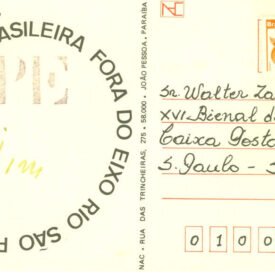 ASILEIRA FORA DO EIXO RIO SÃO
PE
NAC - RUA DAS TRINCHEIRAS, 275 - 58.000 - JOÃO PESSOA, PARAÍBA
Sr. Walter Za
XVI-Bienal d
Caixa Posta
S. Paulo - S
0 1 0 0